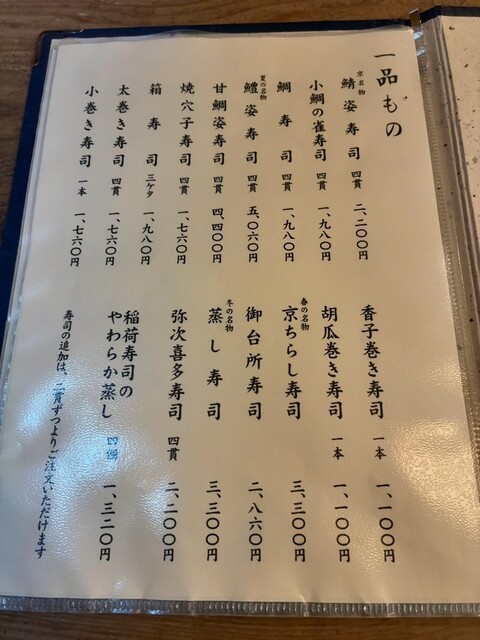 一品もの
京名物
鯖姿寿司 四貫 二、二〇〇円
小鯛の雀寿司 四貫 一、九八〇円
鯛寿司 四貫 一、九八〇円
夏の名物
鱧姿寿司 四貫 五、〇六〇円
甘鯛姿寿司 四貫 四、四〇〇円
焼穴子寿司 四貫 一、七六〇円
箱寿司 三ケタ 一、九八〇円
太巻き寿司 四貫 一、七六〇円
小巻き寿司 一本 一、七六〇円
香子巻き寿司 一本 一、一〇〇円
胡瓜巻き寿司 一本 一、一〇〇円
春の名物
京ちらし寿司 三、三〇〇円
御台所寿司 二、八六〇円
冬の名物
蒸し寿司 三、三〇〇円
弥次喜多寿司 四貫 二、二〇〇円
稲荷寿司の
やわらか蒸し 四個 一、三二〇円
寿司の追加は、二貫ずつよりご注文いただけます